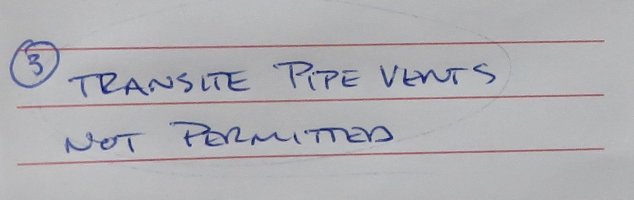 ③ TRANSITE PIPE VENTS
NOT PERMITTED